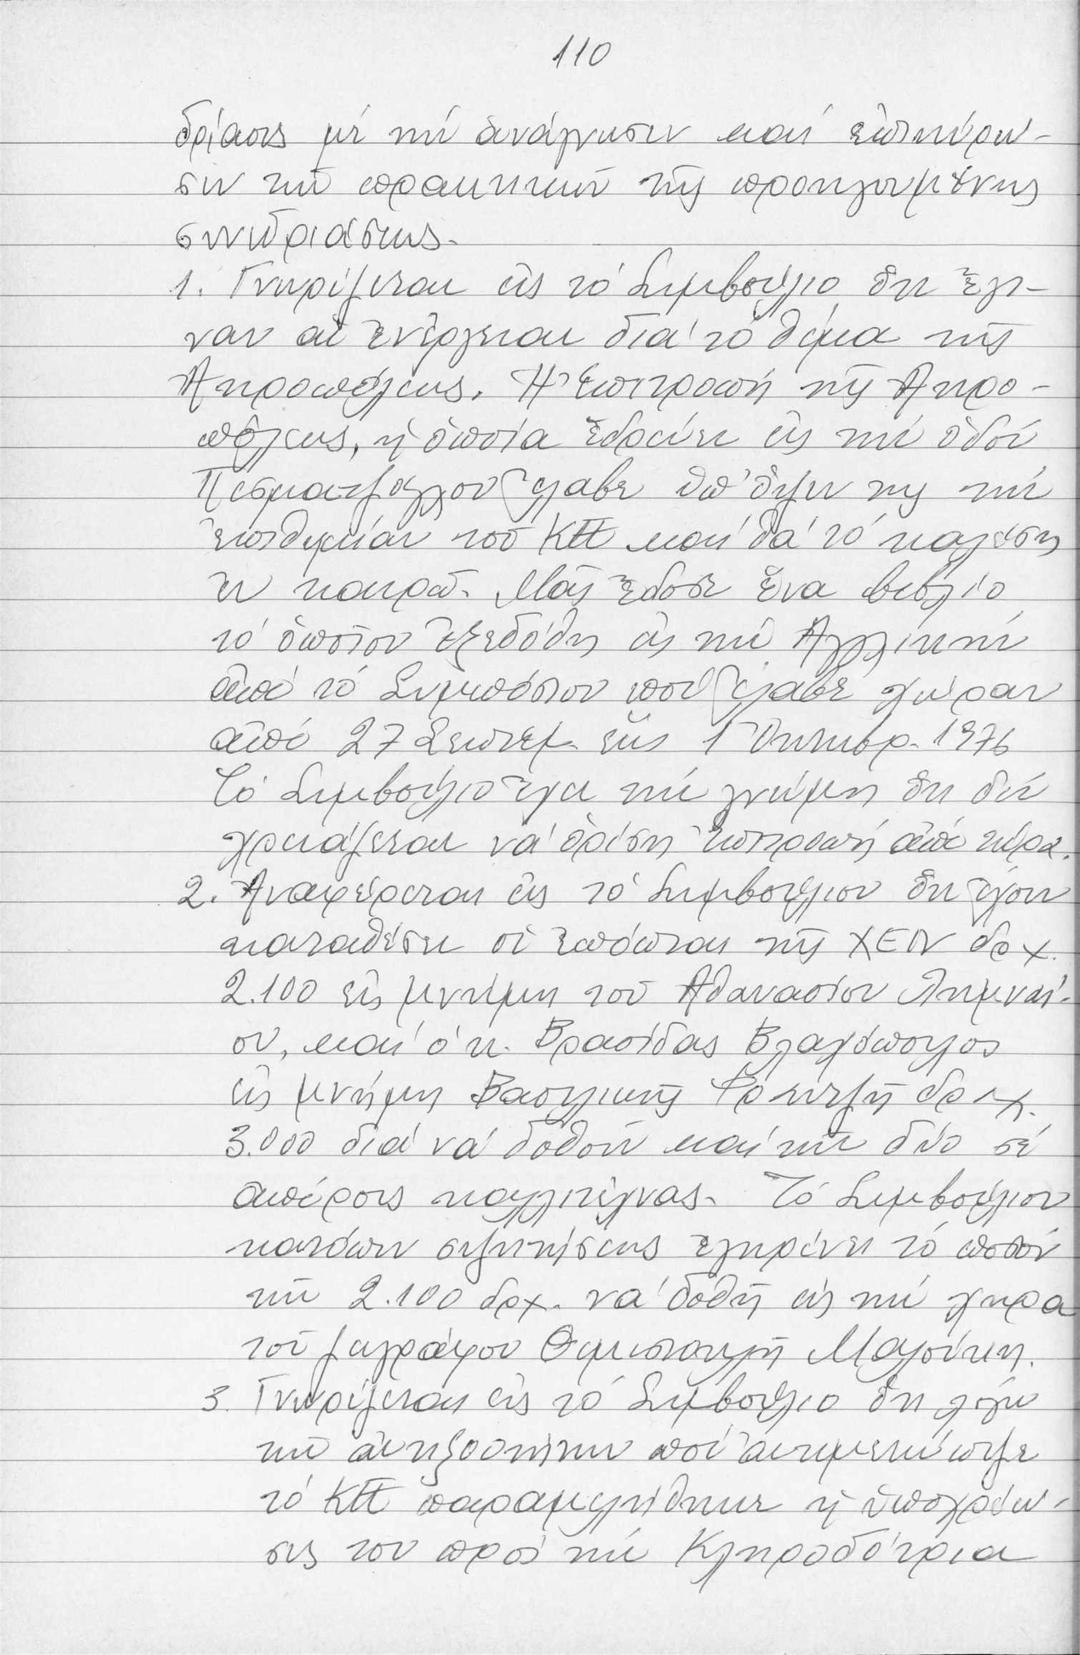 110
δρίασις μέ τήν ἀνάγνωσιν καί ἐπικύρω-
σιν τῶν πρακτικῶν τῆς προηγουμένης
συνεδριάσεως.
1. Γνωρίζεται εἰς τό Συμβούλιο ὅτι ἔγι-
ναν αἱ ἐνέργειαι διά τό θέμα τῆς
Ἀκροπόλεως. Ἡ Ἐπιτροπή τῆς Ἀκρο-
πόλεως, ἡ ὁποία ἑδρεύει εἰς τήν ὁδόν
Πεσματζόγλου ἔλαβε ὑπ' ὄψιν της τήν
ἐπιθυμίαν τοῦ ΚΠ καί θά τό καλέση
ἐν καιρῷ. Μᾶς ἔδοσε ἕνα βιβλίο
τό ὁποῖον ἐξεδόθη εἰς τήν Ἀγγλικήν
ἀπό τό Συμπόσιον πού ἔλαβε χώραν
ἀπό 27 Σεπτεμ. ἕως 1 Ὀκτωβρ. 1976
Τό Συμβούλιο ἔχει τήν γνώμη ὅτι δέν
χρειάζεται νά ὁρίση ἐπιτροπή ἀπό τώρα.
2. Ἀναφέρεται εἰς τό Συμβούλιον ὅτι ἔχουν
καταθέσει οἱ ἐπόπται τῆς ΧΕΝ δρχ.
2.100 εἰς μνήμη τοῦ Ἀθανασίου Λημναί-
ου, καί ὁ κ. Βρασίδας Βλαχόπουλος
εἰς μνήμη Βασιλικῆς δρχ.
3.000 διά νά δοθοῦν καί τῶν δύο σέ
ἀπόρους καλλιτέχνας. Τό Συμβούλιον
κατόπιν συζητήσεως ἐγκρίνει τό ποσόν
τῶν 2.100 δρχ. νά δοθῆ εἰς τήν χήρα
τοῦ ζωγράφου Θεμιστοκλῆ
3. Γνωρίζεται εἰς τό Συμβούλιο ὅτι λόγω
τῶν ἀντιξοοτήτων πού ἀντιμετώπιζε
τό ΚΠ παραμελήθηκε ἡ ὑποχρέω-
σις του πρός τήν Κληροδότρια